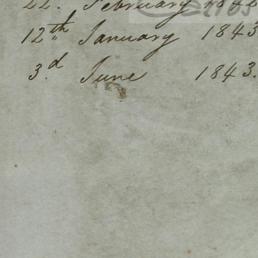 22. February
12th January 1843
3.d June 1843.